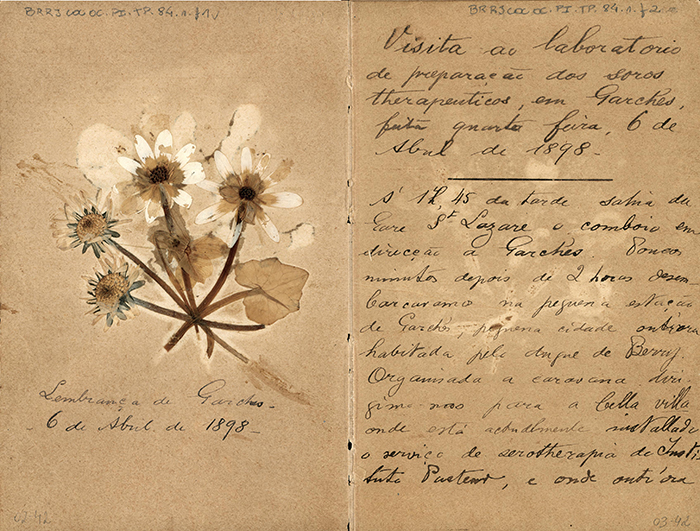 BR RJ COC OC. PI. TP. 84. v. f 1v
Lembrança de Garches -
6 de Abril de 1898 -
03 42
BR RJ COC OC. PI. TP. 84. v. f 2
Visita ao laboratorio
de preparação dos soros
therapeuticos, em Garches,
feita quarta feira, 6 de
Abril de 1898 -
A' 1h, 45 da tarde sahia da
Gare St Lazare o comboio em
direcção a Garches. Poucos
minutos depois de 2 horas desem
barcavamo na pequena estação
de Garches, pequena cidade ontr'ora
habitada pelo duque de Berry.
Organisada a caravana diri
gimo-nos para a bella villa
onde está actualmente installado
o serviço de serotherapia do Insti
tuto Pasteur, e onde ontr'ora
03-42